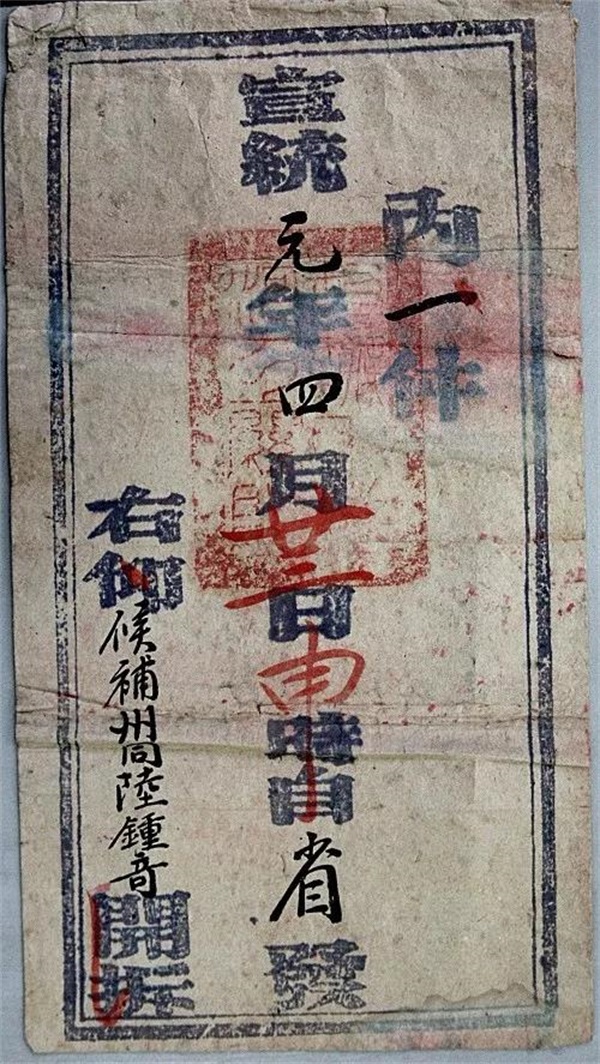 內一件
宣統元年四月廿三日申時自省發
右仰候補州同陸鍾音開拆